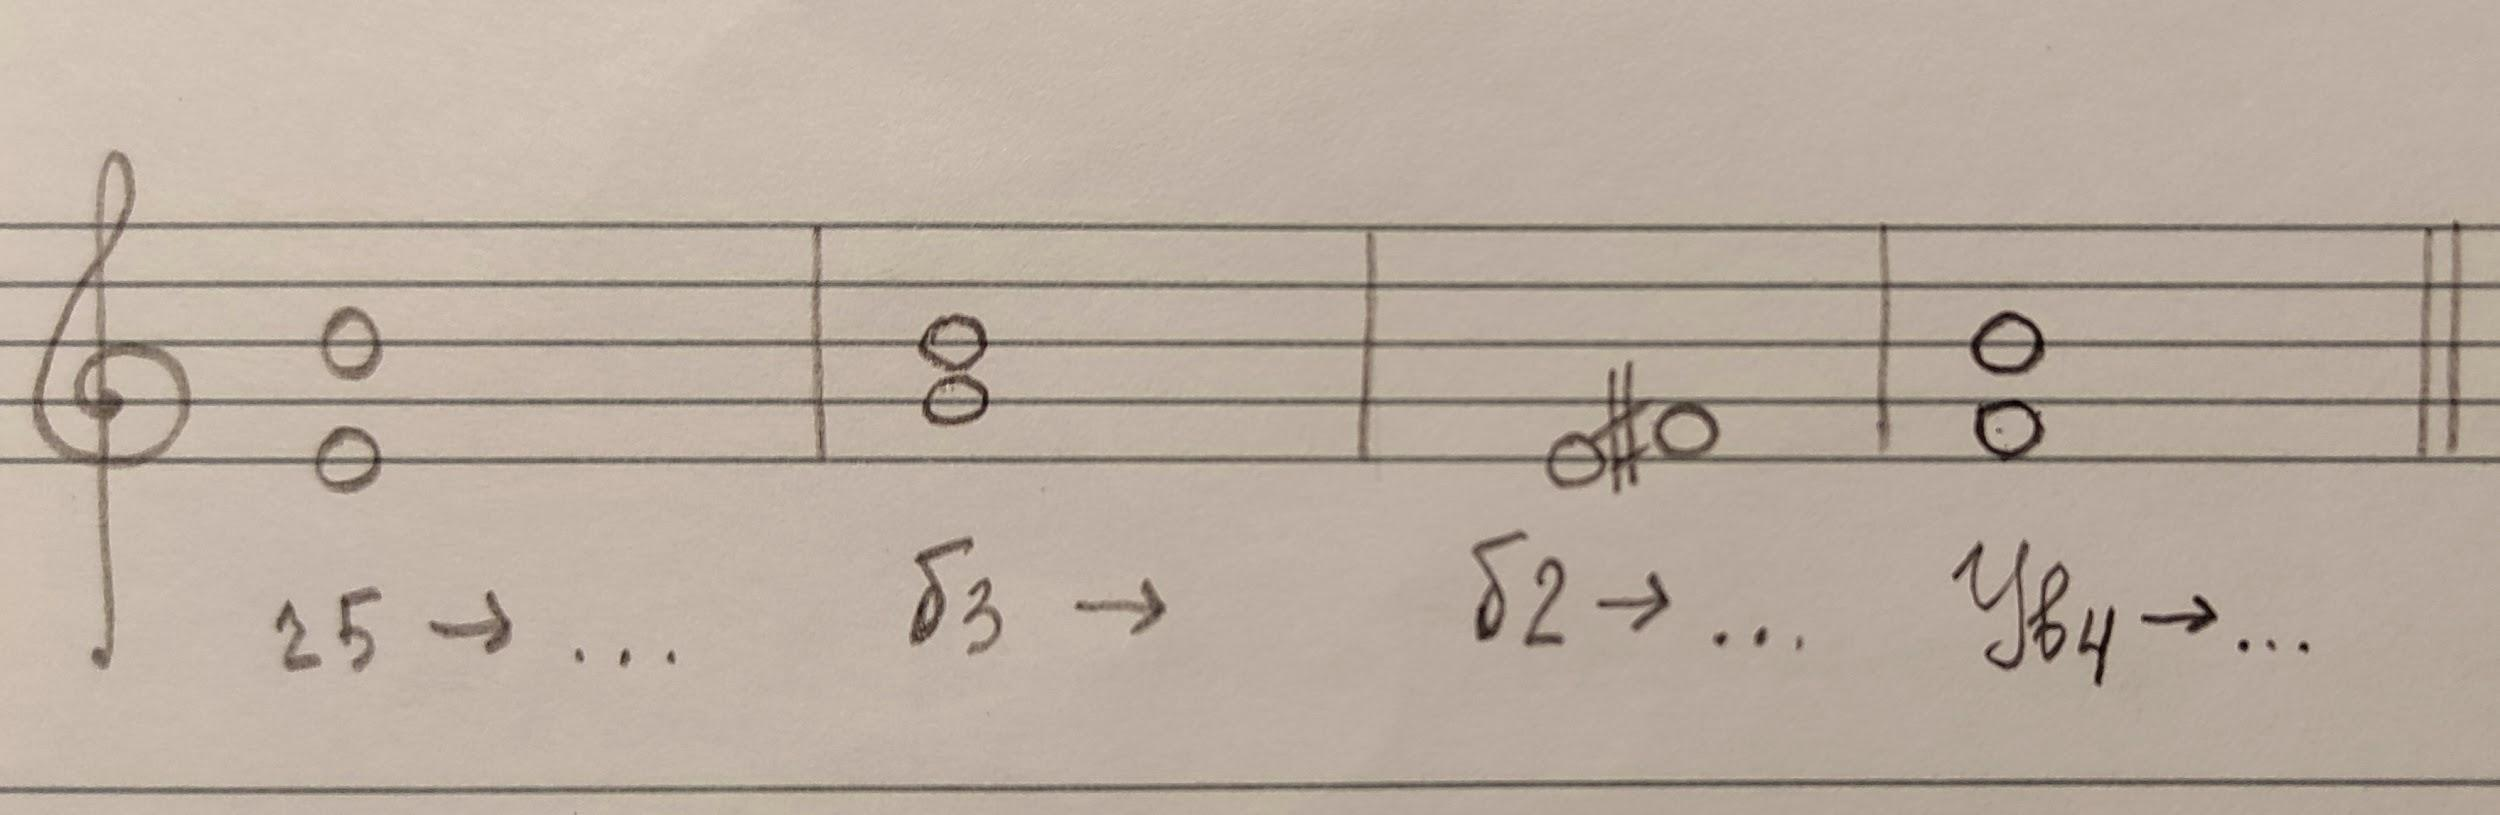 ч5 → ... б3 → б2 → ... Ув4 → ...